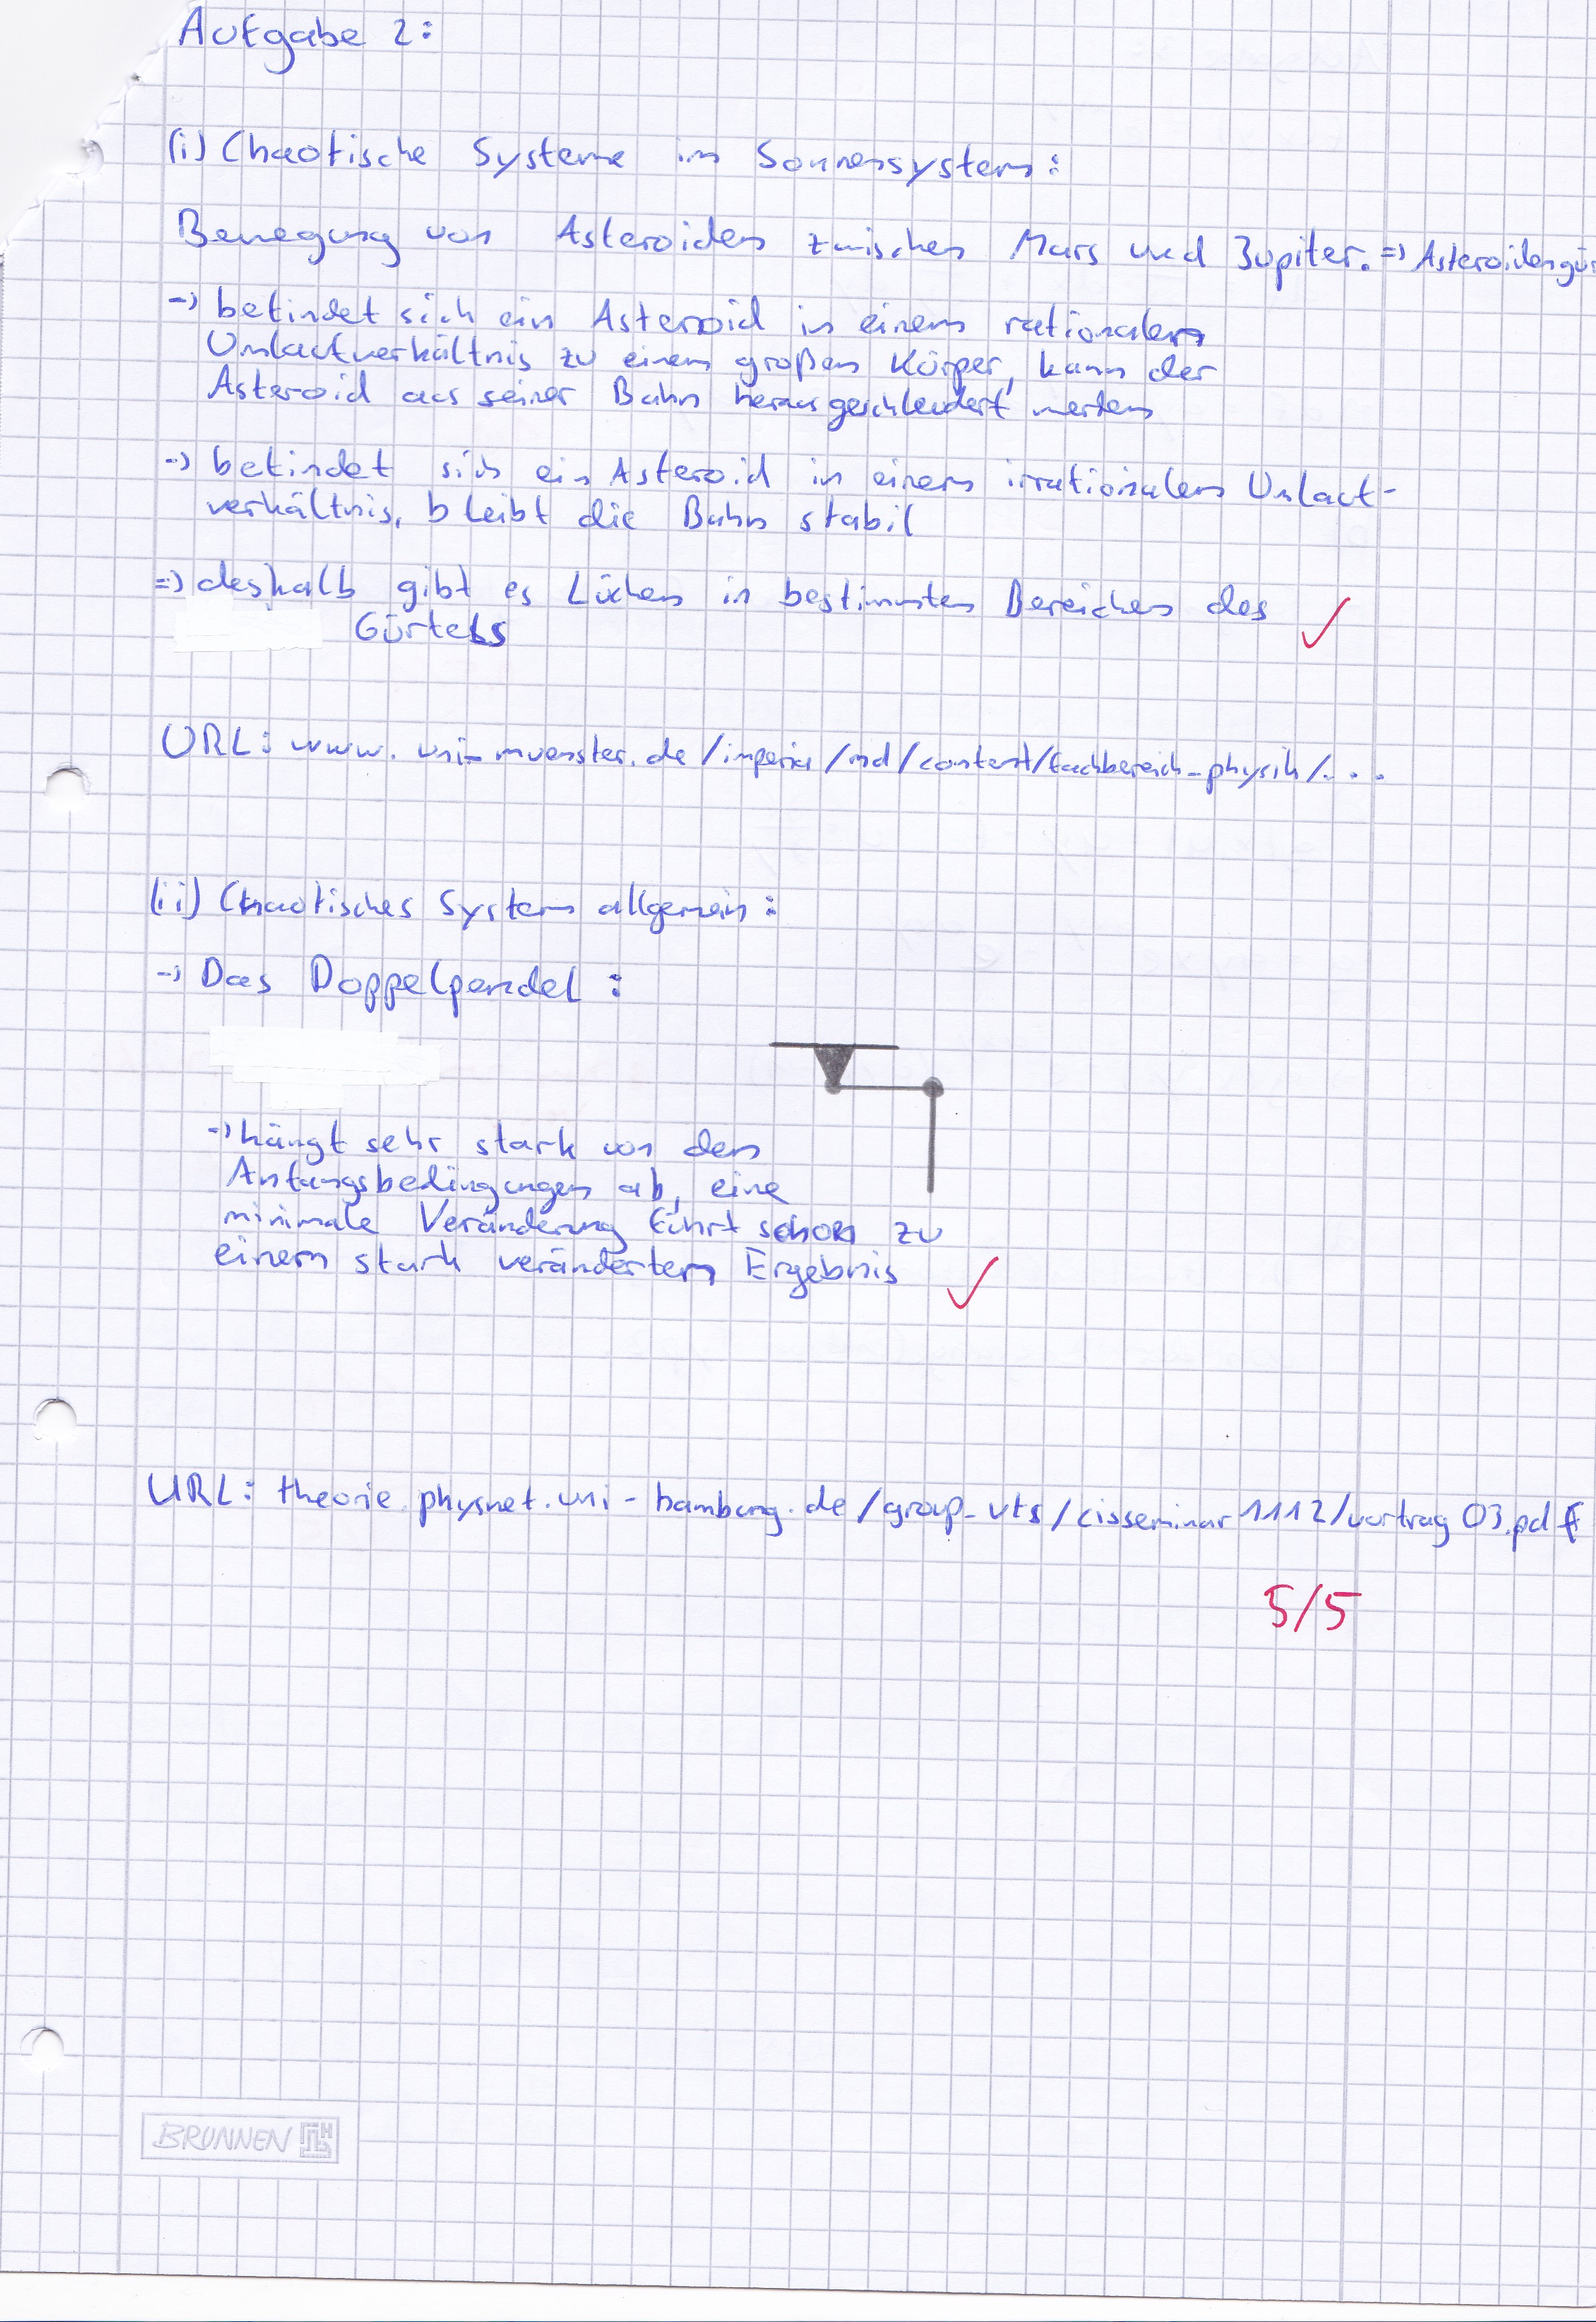 Aufgabe 2:
(i) Chaotische Systeme im Sonnensystem:
Bewegung von Asteroiden zwischen Mars und Jupiter. => Asteroidengür
-> befindet sich ein Asteroid in einem rationalem
Umlaufverhältnis zu einem großen Körper, kann der
Asteroid aus seiner Bahn herausgeschleudert werden
-> befindet sich ein Asteroid in einem irrationalem Umlauf-
verhältnis, bleibt die Bahn stabil
=> deshalb gibt es Lücken in bestimmten Bereichen des ✓
Gürtels
URL: www.uni-muenster.de/imperia/md/content/fachbereich_physik/...
(ii) Chaotisches System allgemein:
-> Das Doppelpendel:
-> hängt sehr stark von den
Anfangsbedingungen ab, eine
minimale Veränderung führt schon zu
einem stark verändertem Ergebnis ✓
URL: theorie.physnet.uni-hamburg.de/group_vts/cisseminar1112/vortrag03.pdf
5/5
BRUNNEN